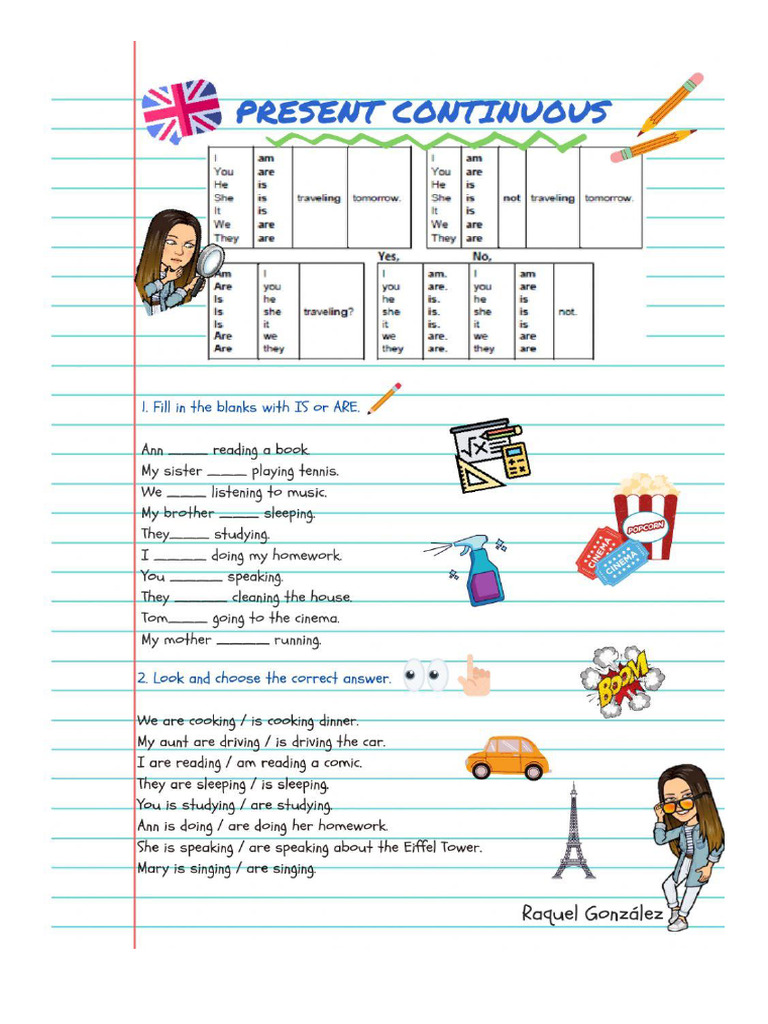 PRESENT CONTINUOUS
I am
You are
He is
She is traveling tomorrow.
It is
We are
They are
I am
You are
He is
She is not traveling tomorrow.
It is
We are
They are
Am I
Are you
Is he
Is she traveling?
Is it
Are we
Are they
Yes, No,
I am. I am
you are. you are
he is. he is
she is. she is not.
it is. it is
we are. we are
they are. they are
1. Fill in the blanks with IS or ARE.
Ann _____ reading a book.
My sister _____ playing tennis.
We _____ listening to music.
My brother _____ sleeping.
They_____ studying.
I ______ doing my homework.
You ______ speaking.
They ______ cleaning the house.
Tom_____ going to the cinema.
My mother ______ running.
POPCORN
CINEMA
CINEMA
2. Look and choose the correct answer.
BOOM
We are cooking / is cooking dinner.
My aunt are driving / is driving the car.
I are reading / am reading a comic.
They are sleeping / is sleeping.
You is studying / are studying.
Ann is doing / are doing her homework.
She is speaking / are speaking about the Eiffel Tower.
Mary is singing / are singing.
Raquel González